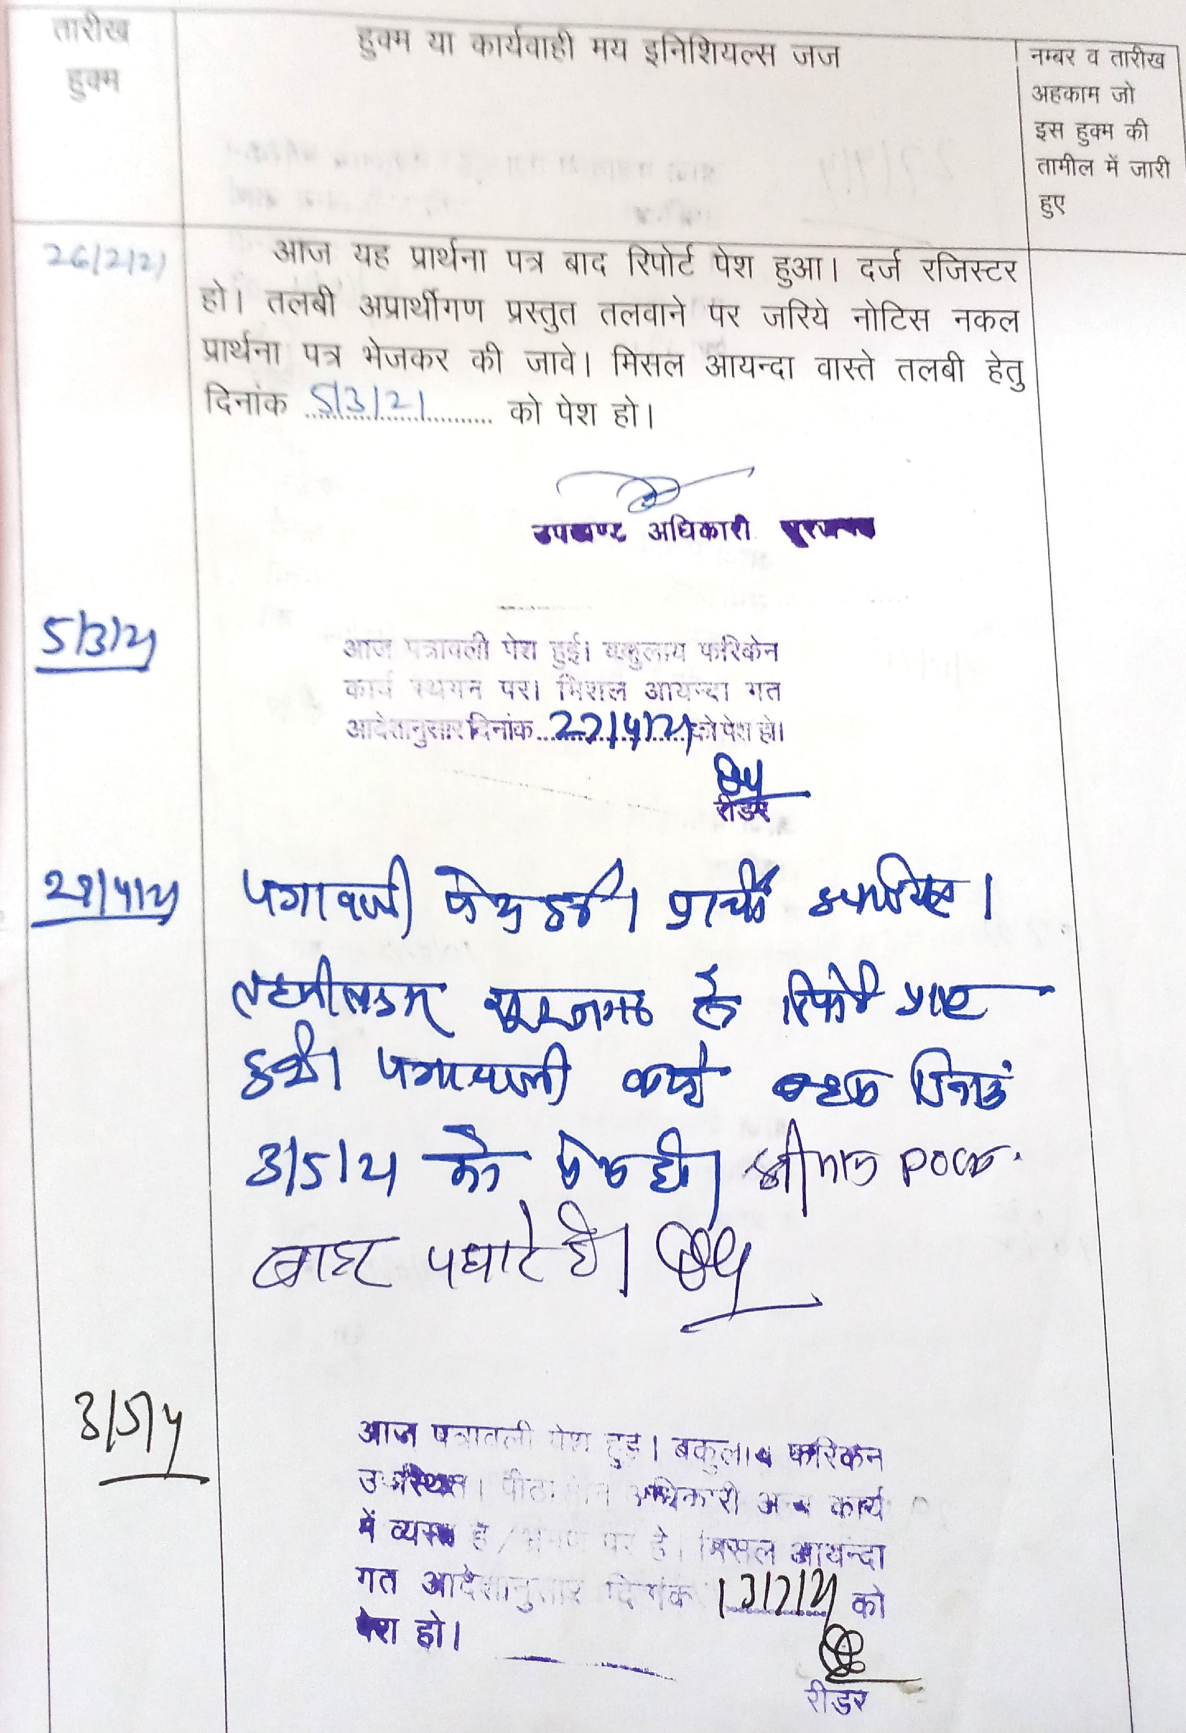 तारीख
हुक्म
हुक्म या कार्यवाही मय इनिशियल्स जज
नम्बर व तारीख
अहकाम जो
इस हुक्म की
तामील में जारी
हुए
26/2/21
आज यह प्रार्थना पत्र बाद रिपोर्ट पेश हुआ। दर्ज रजिस्टर
हो। तलबी अप्रार्थीगण प्रस्तुत तलवाने पर जरिये नोटिस नकल
प्रार्थना पत्र भेजकर की जावे। मिसल आयन्दा वास्ते तलबी हेतु
दिनांक 5/3/21 को पेश हो।
उपखण्ड अधिकारी
5/3/21
आज पत्रावली पेश हुई। वकुलाय फरिकेन
कार्य स्थगन पर। मिशल आयन्दा गत
आदेशानुसार दिनांक 22/4/21 को पेश हो।
रीडर
पत्रावली पेश हुई। प्रार्थी उपस्थित।
तहसीलदार सूरजगढ से रिपोर्ट प्राप्त
हुयी। पत्रावली वास्ते बहस दिनांक
3/5/21 को पेश हो। श्रीमान
बाहर पधारे है।
3/5/21
आज पत्रावली पेश हुई। वकुलाय फरिकेन
उपस्थित। पीठासीन अधिकारी अन्य कार्य
में व्यस्त है / भ्रमण पर है। मिसल आयन्दा
गत आदेशानुसार दिनांक को
पेश हो।
रीडर